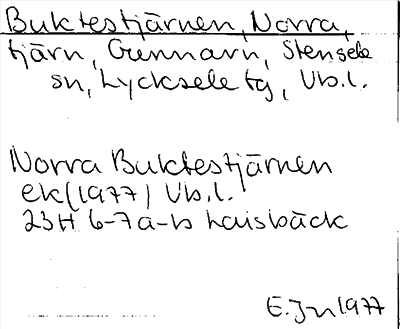 Buktestjärnen, Norra,
tjärn, Grennarn, Stensele
sn, Lycksele tg, Vb.l.
Norra Buktestjärnen
ek (1977) Vb.l.
23H 6-7a-b Laisbäck
E. Jn 1977